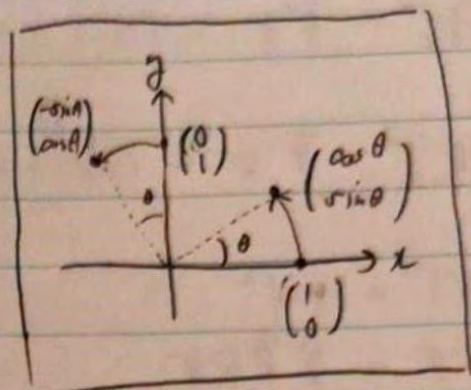 y
(-sinθ
cosθ)
(0
1)
(cosθ
sinθ)
θ
θ
x
(1
0)